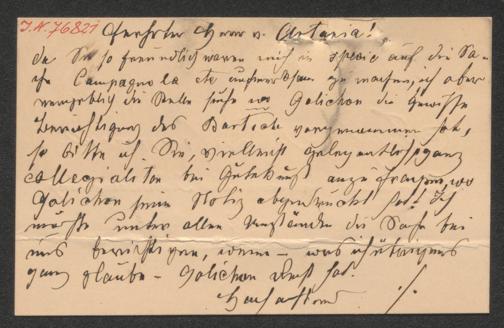 J.N. 76821
Geehrter Herr v. Artaria!
da Sie so freundlich waren mich in specie auf die Sa-
che Campagnola etc aufmerksam zu machen, ich aber
vergeblich die Stelle suche wo Galichon die gewisse
Berichtigung des Bartsch vorgenommen hat,
so bitte ich Sie, vielleicht gelegentlich ganz
collegialiter bei anzufragen, wo
Galichon seine Notiz abgedruckt hat! Ich
möchte unter allen Umständen die Sache bei
uns berichtigen, wenn – was ich übrigens
ganz glaube – Galichon Recht hat.
Hochachtend ./.